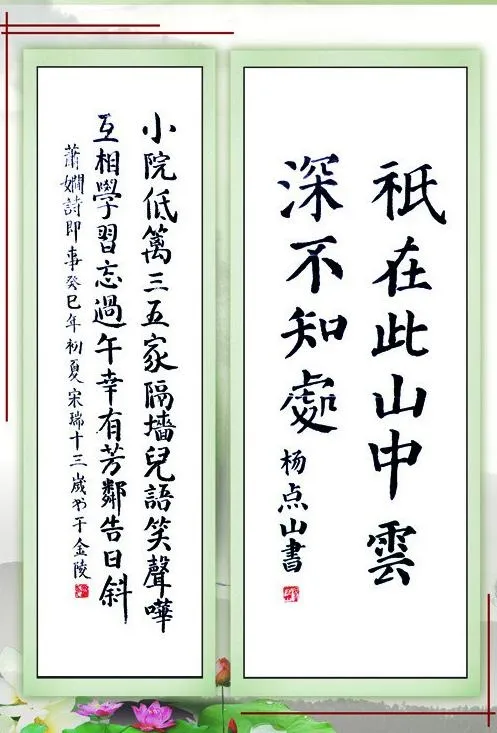 祇在此山中雲
深不知處
杨点山書
小院低篱三五家隔墻兒語笑聲嘩
互相學習忘過午幸有芳鄰告日斜
蕭嫻詩即事癸巳年初夏宋瑞十三歲书于金陵